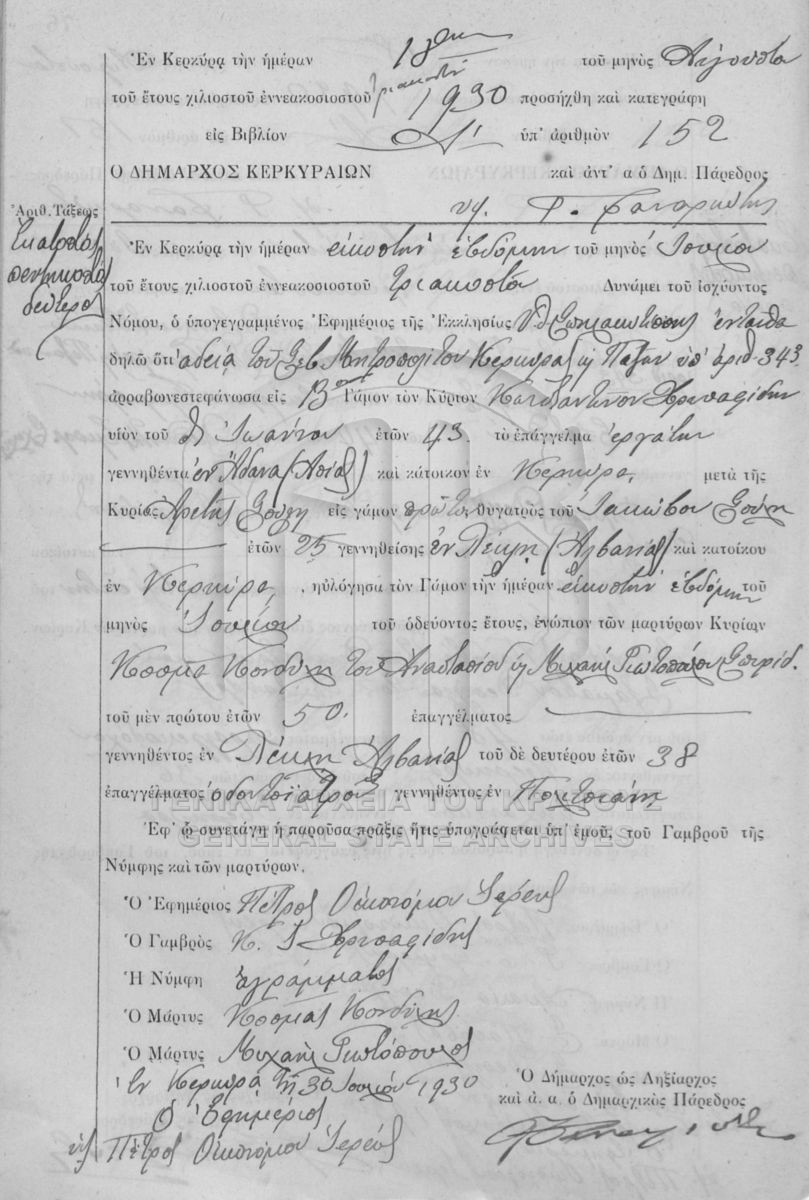 Ἐν Κερκύρᾳ τὴν ἡμέραν 18ην τοῦ μηνὸς Αὐγούστου
τοῦ ἔτους χιλιοστοῦ ἐννεακοσιοστοῦ τριακοστοῦ 1930 προσήχθη καὶ κατεγράφη
εἰς Βιβλίον Α' ὑπ' ἀριθμὸν 152
Ο ΔΗΜΑΡΧΟΣ ΚΕΡΚΥΡΑΙΩΝ καὶ ἀντ' α ὁ Δημ. Πάρεδρος
Ἀριθ. Τάξεως
Ἑκατοστὸς
πεντηκοστὸς
δεύτερος
Ἐν Κερκύρᾳ τὴν ἡμέραν εἰκοστὴν ἑβδόμην τοῦ μηνὸς Ἰουλίου
τοῦ ἔτους χιλιοστοῦ ἐννεακοσιοστοῦ τριακοστοῦ Δυνάμει τοῦ ἰσχύοντος
Νόμου, ὁ ὑπογεγραμμένος Ἐφημέριος τῆς Ἐκκλησίας ἐνταῦθα
δηλῶ ὅτι ἀδείᾳ τοῦ Σεβ. Μητροπολίτου Κερκύρας κ Παξῶν ὑπ' ἀριθ. 343
ἀρραβωνεστεφάνωσα εἰς Βον Γάμον τὸν Κύριον Κωνσταντῖνον
υἱὸν τοῦ Ἰωάννου ἐτῶν 43. τὸ ἐπάγγελμα ἐργάτην
γεννηθέντα ἐν Ἄδανα (Ἀσίας) καὶ κάτοικον ἐν Κερκύρᾳ, μετὰ τῆς
Κυρίας Ἀρετῆς Ζούλη εἰς γάμον πρῶτον θυγατρὸς τοῦ Ἰακώβου Ζούλη
ἐτῶν 25 γεννηθείσης ἐν (Ἀλβανίας) καὶ κατοίκου
ἐν Κερκύρᾳ, ηὐλόγησα τὸν Γάμον τὴν ἡμέραν εἰκοστὴν ἑβδόμην τοῦ
μηνὸς Ἰουλίου τοῦ ὁδεύοντος ἔτους, ἐνώπιον τῶν μαρτύρων Κυρίων
Κοσμᾶ τοῦ Ἀναστασίου κ Μιχαὴλ Σπυρίδ.
τοῦ μὲν πρώτου ἐτῶν 50. ἐπαγγέλματος
γεννηθέντος ἐν Ἀλβανίας τοῦ δὲ δευτέρου ἐτῶν 38
ἐπαγγέλματος ὀδοντοϊάτρου γεννηθέντος ἐν
ΓΕΝΙΚΑ ΑΡΧΕΙΑ ΤΟΥ ΚΡΑΤΟΥΣ
GENERAL STATE ARCHIVES
Ἐφ' ᾧ συνετάγη ἡ παροῦσα πρᾶξις ἥτις ὑπογράφεται ὑπ' ἐμοῦ, τοῦ Γαμβροῦ τῆς
Νύμφης καὶ τῶν μαρτύρων.
Ὁ Ἐφημέριος Πέτρος Οἰκονόμου Ἱερεὺς
Ὁ Γαμβρὸς Κ. Ι
Ἡ Νύμφη ἀγράμματος
Ὁ Μάρτυς Κοσμᾶς
Ὁ Μάρτυς Μιχαὴλ
Ἐν Κερκύρᾳ τῇ 30 Ἰουλίου 1930
Ὁ Ἐφημέριος
Πέτρος Οἰκονόμου Ἱερεὺς
Ὁ Δήμαρχος ὡς Ληξίαρχος
καὶ ἀ. α. ὁ Δημαρχικὸς Πάρεδρος